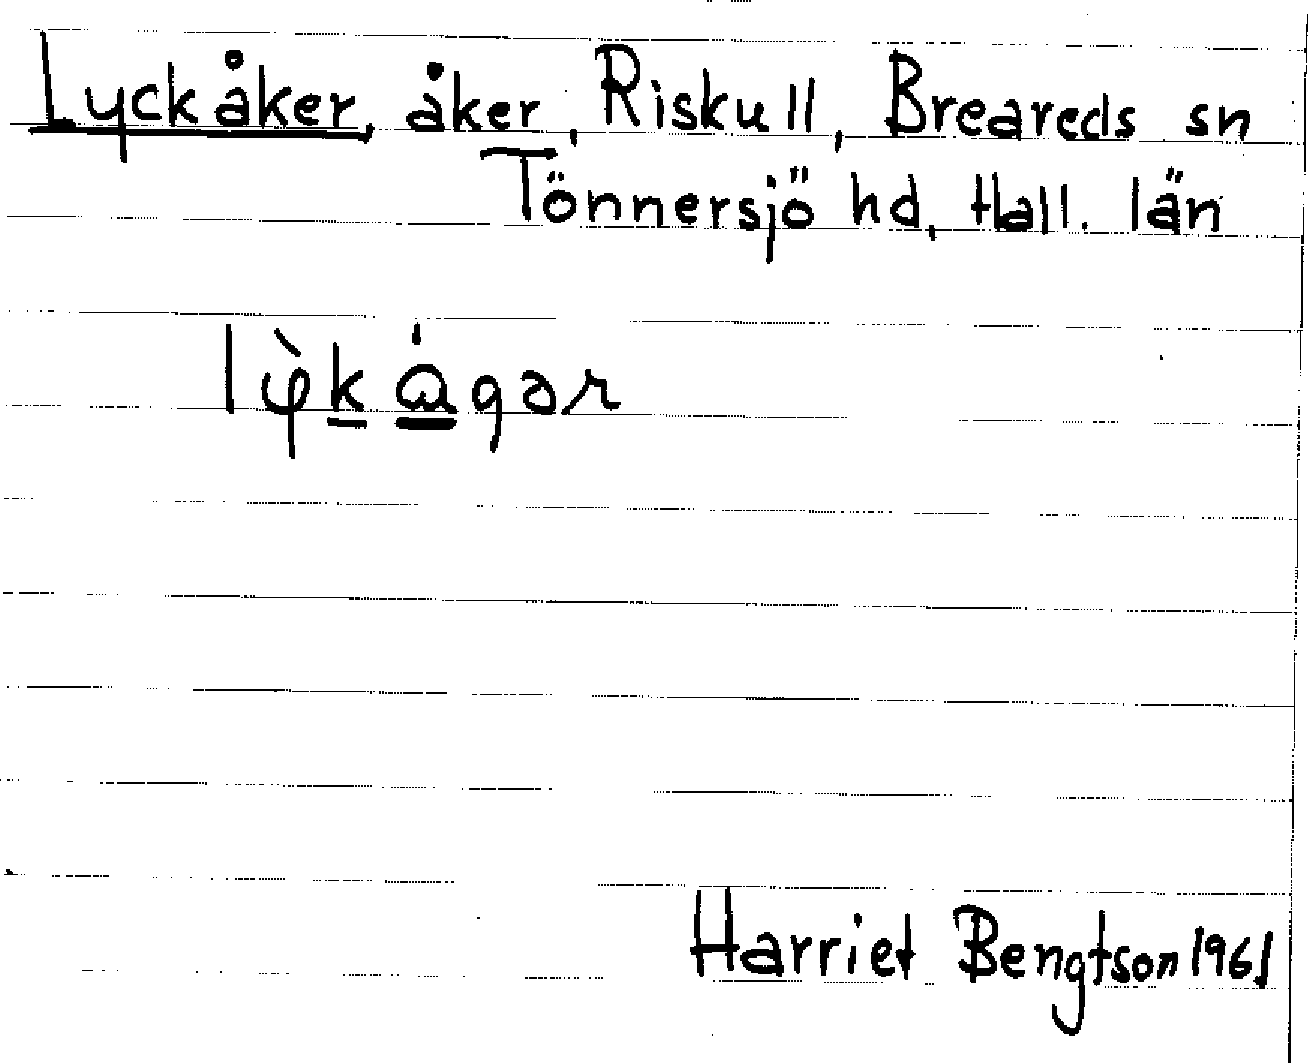 Lyckåker, åker, Riskull, Breareds sn
Tönnersjö hd, Hall. län
Harriet Bengtson 1961